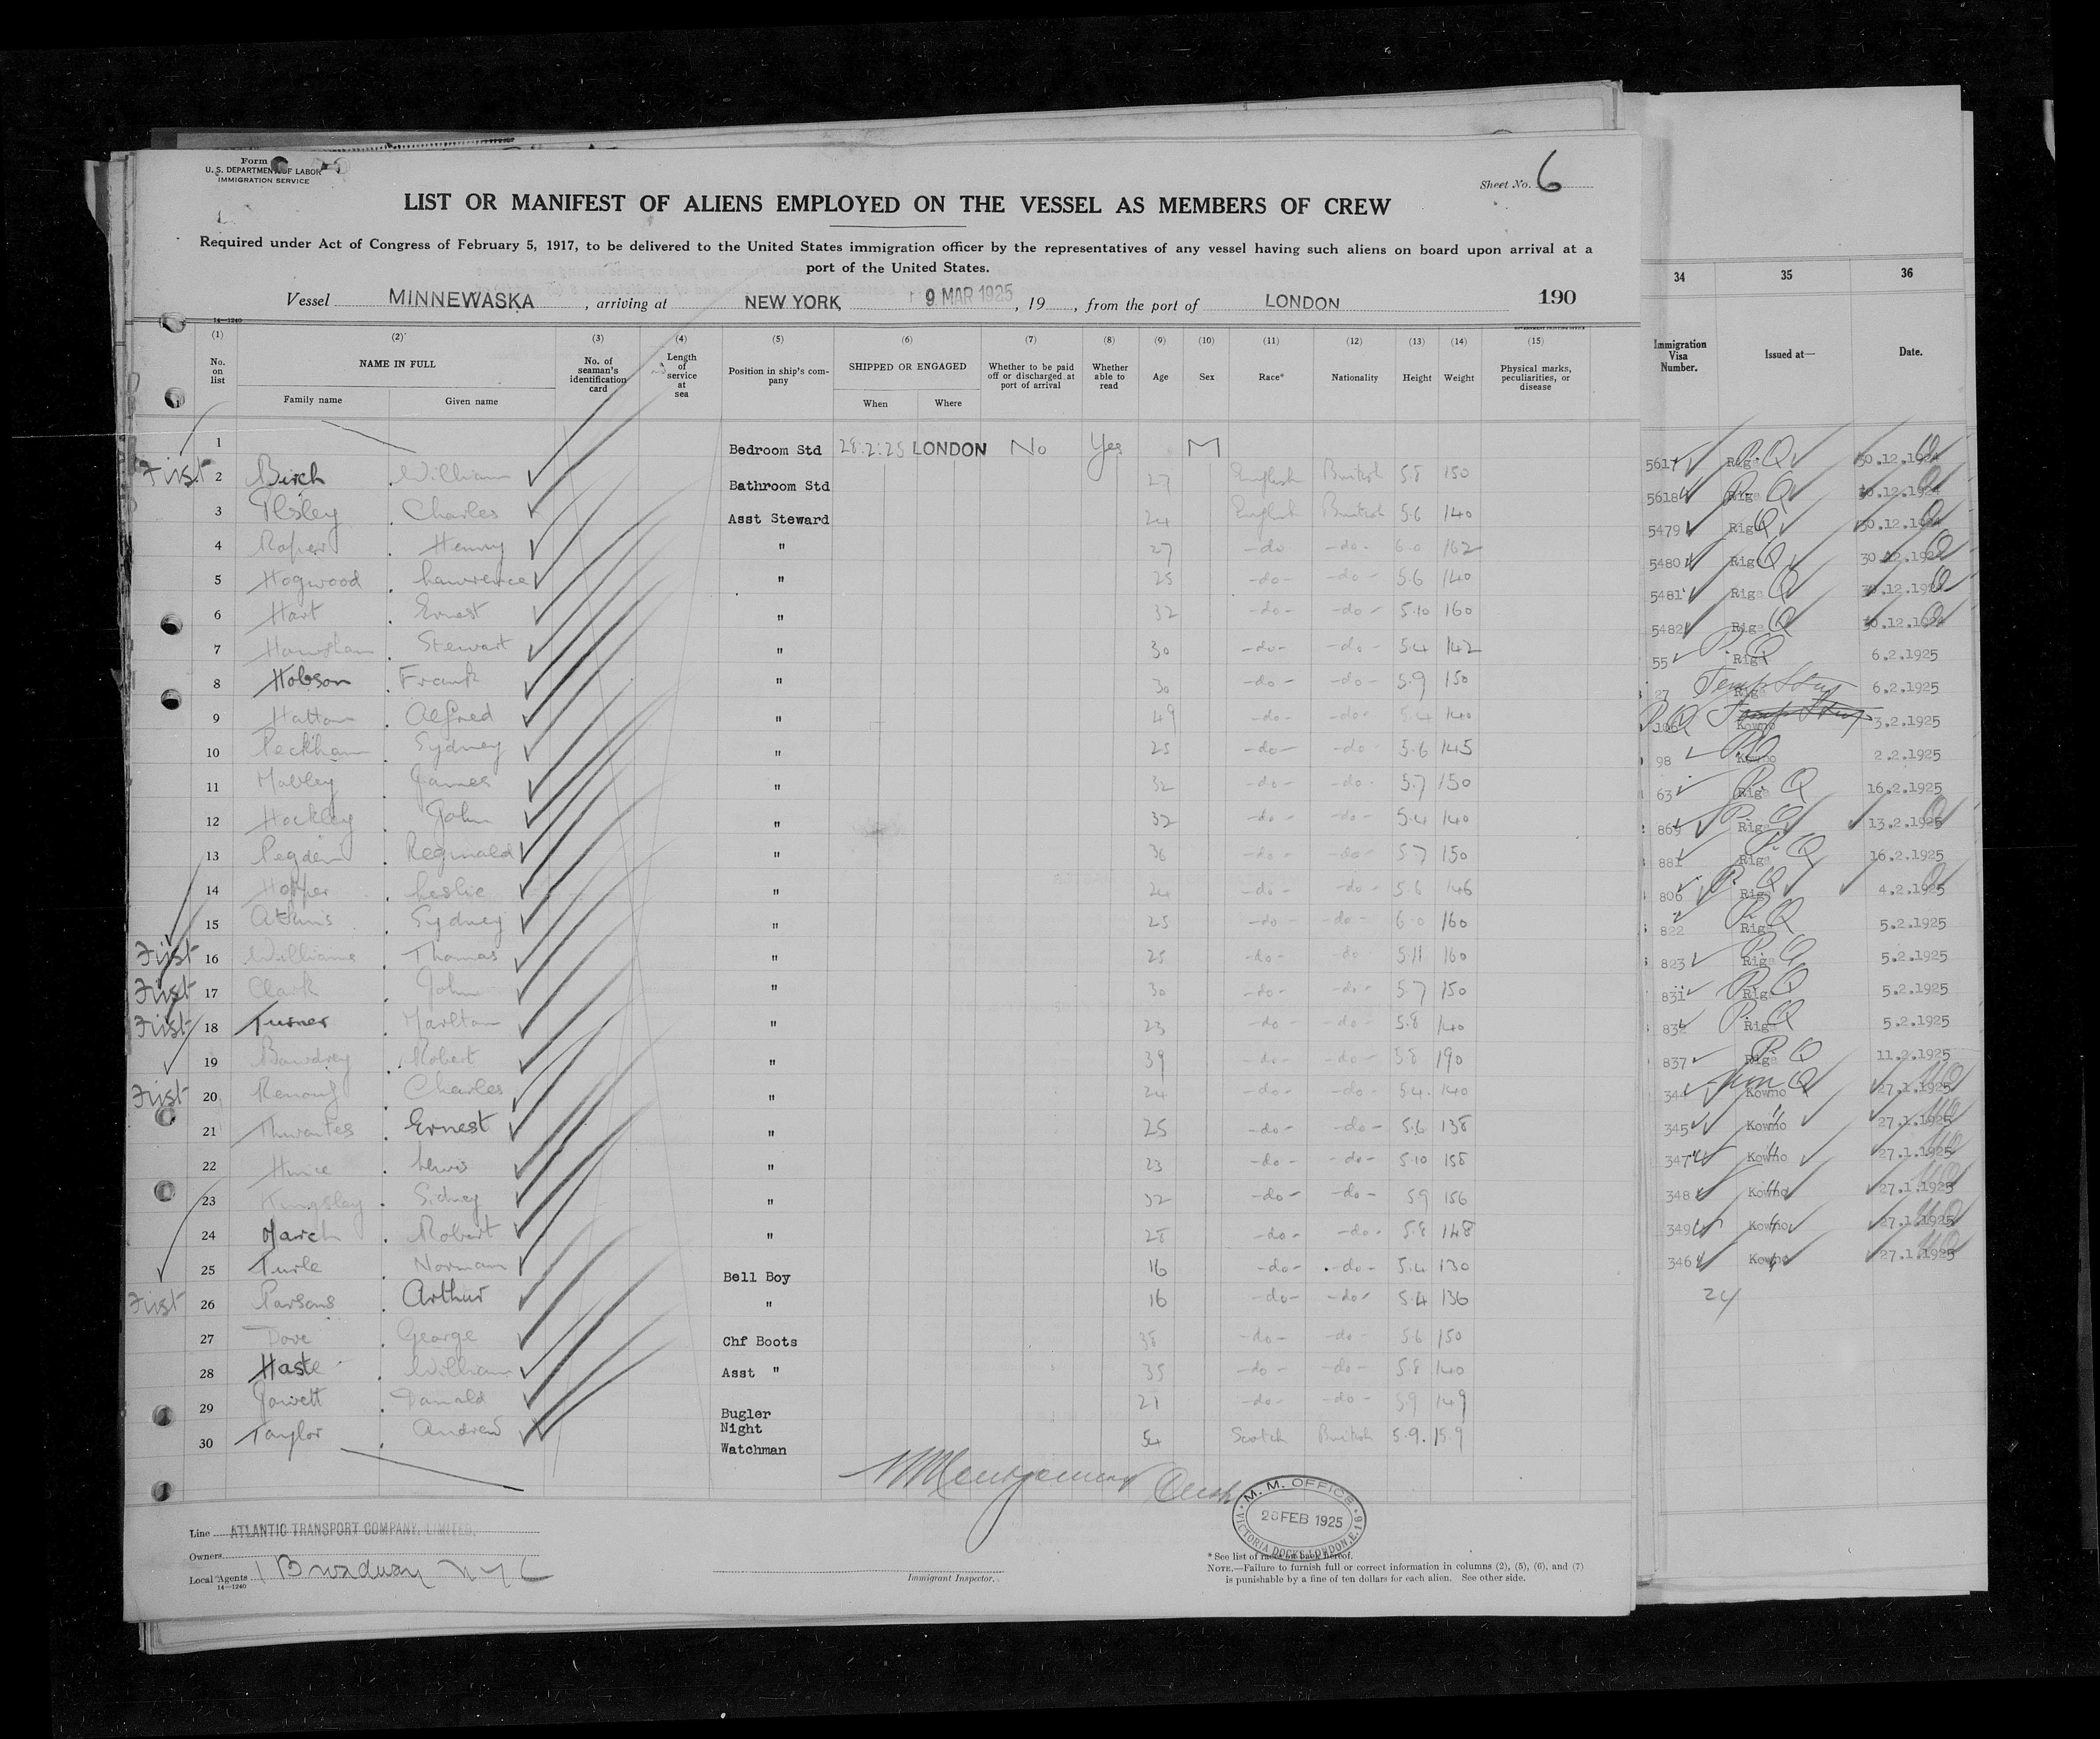 Form
U. S. DEPARTMENT OF LABOR
IMMIGRATION SERVICE
Sheet No. 6
LIST OR MANIFEST OF ALIENS EMPLOYED ON THE VESSEL AS MEMBERS OF CREW
Required under Act of Congress of February 5, 1917, to be delivered to the United States immigration officer by the representatives of any vessel having such aliens on board upon arrival at a
port of the United States.
Vessel MINNEWASKA , arriving at NEW YORK, 9 MAR 1925 , 19 , from the port of LONDON 190
14—1240
(1) (2) (3) (4) (5) (6) (7) (8) (9) (10) (11) (12) (13) (14) (15)
No. on list NAME IN FULL No. of seaman's identification card Length of service at sea Position in ship's company SHIPPED OR ENGAGED Whether to be paid off or discharged at port of arrival Whether able to read Age Sex Race* Nationality Height Weight Physical marks, peculiarities, or disease
Family name Given name When Where
1 Bedroom Std 28.2.25 LONDON No Yes M
First 2 Birch William Bathroom Std 27 English British 5.8 150
3 Ilsley Charles Asst Steward 24 English British 5.6 140
4 Roper Henry " 27 -do- -do- 6.0 162
5 Hogwood Lawrence " 25 -do- -do- 5.6 140
6 Hart Ernest " 32 -do- -do- 5.10 160
7 Stewart " 30 -do- -do- 5.4 142
8 Hobson Frank " 30 -do- -do- 5.9 150
9 Hatton Alfred " 49 -do- -do- 5.4 140
10 Peckham Sydney " 25 -do- -do- 5.6 145
11 Mabley James " 32 -do- -do- 5.7 150
12 Hockley John " 32 -do- -do- 5.4 140
13 Pegden Reginald " 36 -do- -do- 5.7 150
14 Hopper Leslie " 24 -do- -do- 5.6 146
15 Atkins Sydney " 25 -do- -do- 6.0 160
First 16 Williams Thomas " 25 -do- -do- 5.11 160
First 17 Clark John " 30 -do- -do- 5.7 150
First 18 Turner Marlton " 23 -do- -do- 5.8 140
19 Bawdrey Robert " 39 -do- -do- 5.8 190
First 20 Renouf Charles " 24 -do- -do- 5.4. 140
21 Thwaites Ernest " 25 -do- -do- 5.6 138
22 Lewis " 23 -do- -do- 5.10 158
23 Kingsley Sidney " 32 -do- -do- 5.9 156
24 March Robert " 28 -do- -do- 5.8 148
25 Turle Norman Bell Boy 16 -do- -do- 5.4 130
First 26 Parsons Arthur " 16 -do- -do- 5.4 136
27 Dove George Chf Boots 38 -do- -do- 5.6 150
28 Haste William Asst " 35 -do- -do- 5.8 140
29 Jowett Donald Bugler 21 -do- -do- 5.9 149
30 Taylor Andrew Night Watchman 54 Scotch British 5.9. 159
Line ATLANTIC TRANSPORT COMPANY, LIMITED.
Owners
Local Agents 1 Broadway NYC
14—1240
Immigrant Inspector.
M. M. OFFICE
28 FEB 1925
VICTORIA DOCKS, LONDON, E.16
* See list of races on back hereof.
NOTE.—Failure to furnish full or correct information in columns (2), (5), (6), and (7)
is punishable by a fine of ten dollars for each alien. See other side.
34 35 36
Immigration Visa Number. Issued at— Date.
5617 Riga 30.12.1924
5618 Riga 30.12.1924
5479 Riga 30.12.1924
5480 Riga 30.12.1924
5481 Riga 30.12.1924
5482 Riga 30.12.1924
55 Riga 6.2.1925
27 Riga 6.2.1925
106 Kowno 3.2.1925
98 Kowno 2.2.1925
63 Riga 16.2.1925
869 Riga 13.2.1925
881 Riga 16.2.1925
806 Riga 4.2.1925
822 Riga 5.2.1925
823 Riga 5.2.1925
831 Riga 5.2.1925
832 Riga 5.2.1925
837 Riga 11.2.1925
344 Kowno 27.1.1925
345 Kowno 27.1.1925
347 Kowno 27.1.1925
348 Kowno 27.1.1925
349 Kowno 27.1.1925
346 Kowno 27.1.1925
24